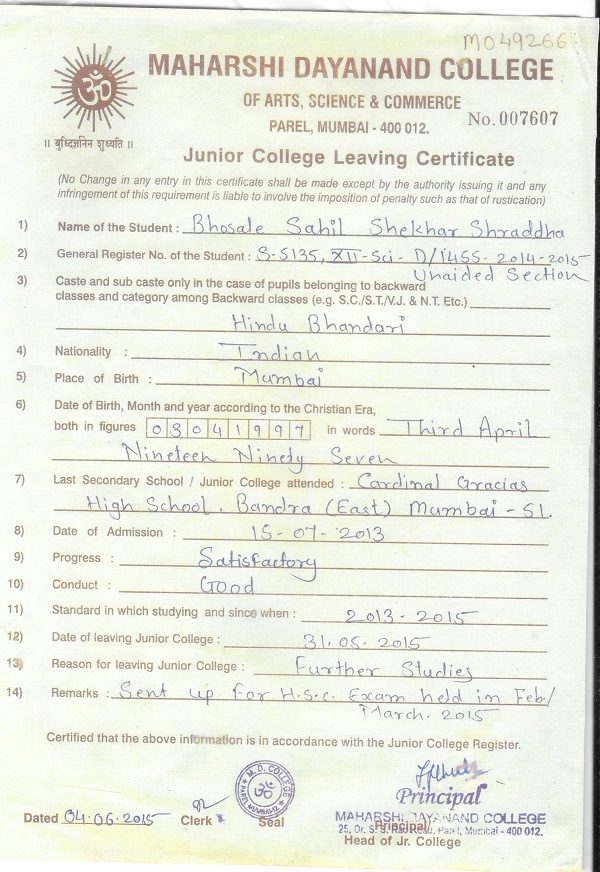 M049266
MAHARSHI DAYANAND COLLEGE
OF ARTS, SCIENCE & COMMERCE
PAREL, MUMBAI - 400 012.
No. 007607
॥ बुध्दिर्ज्ञानेन शुध्यति ॥
Junior College Leaving Certificate
(No Change in any entry in this certificate shall be made except by the authority issuing it and any
infringement of this requirement is liable to involve the imposition of penalty such as that of rustication)
1) Name of the Student : Bhosale Sahil Shekhar Shraddha
2) General Register No. of the Student : S-5135, XII-Sci- D/1455- 2014-2015
Unaided Section
3) Caste and sub caste only in the case of pupils belonging to backward
classes and category among Backward classes (e.g. S.C./S.T./V.J. & N.T. Etc.)
Hindu Bhandari
4) Nationality : Indian
5) Place of Birth : Mumbai
6) Date of Birth, Month and year according to the Christian Era,
both in figures 03041997 in words Third April
Nineteen Ninety Seven
7) Last Secondary School / Junior College attended : Cardinal Gracias
High School, Bandra (East) Mumbai - 51.
8) Date of Admission : 15-07-2013
9) Progress : Satisfactory
10) Conduct : Good
11) Standard in which studying and since when : 2013-2015
12) Date of leaving Junior College : 31.05.2015
13) Reason for leaving Junior College : Further Studies
14) Remarks : Sent up for H.S.C. Exam held in Feb/
March. 2015
Certified that the above information is in accordance with the Junior College Register.
M. D. COLLEGE
Principal
Dated 04.06.2015 Clerk Seal
MAHARSHI DAYANAND COLLEGE
25, Dr. S. S. Parel, Mumbai - 400 012.
Principal/
Head of Jr. College